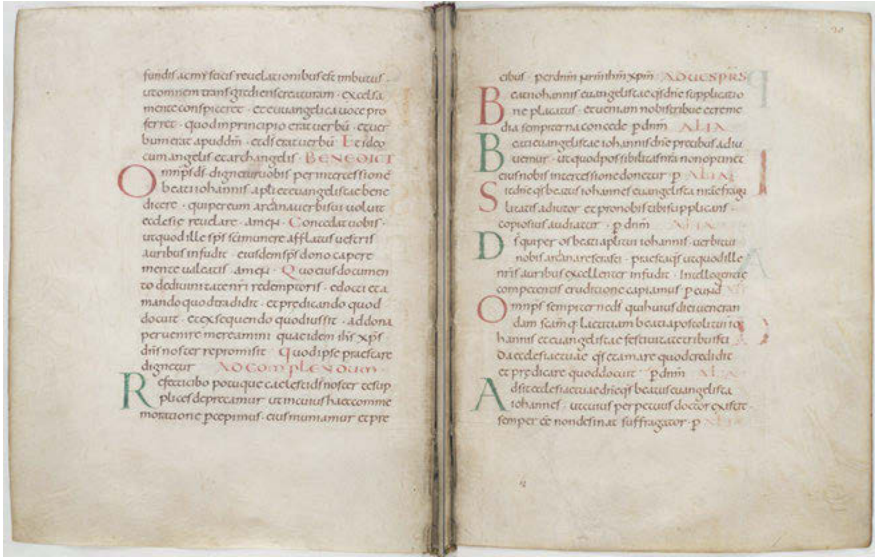 fundis ac mysticis reuelationibus est imbutus ·
ut omnem transgrediens creaturam · excelsa
mente conspiceret · et euuangelica uoce pro
ferret · quod in principio erat uerbũ · et uer
bum erat apud dm̃ · et ds̃ erat uerbũ Et ideo
cum angelis et archangelis · BENEDICT
Omnps̃ ds̃ dignetur uobis per intercessionẽ
beati iohannis apli et euangelistae bene
dicere · qui per eum archana uerbi sui uoluit
ecclesie reuelare · amen · Concedat uobis ·
ut quod ille sps̃ sci munere afflatus uestris
auribus infudit · eiusdem sps̃ dono capere
mente ualeatis · amen · Quo eius documen
to de diuinitate nri redemptoris · edocti et a
mando quod tradidit · et predicando quod
docuit · et exsequendo quod iussit · ad dona
peruenire mereamini quae idem ihs̃ xps̃
dñs noster repromisit · Quod ipse praestare
dignetur AD COMPLENDUM ·
Refecti cibo potuque caelesti ds̃ noster te sup
plices deprecamur ut in cuius haec comme
moratione p̃cepimus · eius muniamur et pre
20
cibus · per dnm̃ nrm̃ ihm̃ xpm̃ · AD UESPRS
Beati iohannis euangelistae qs dñe supplicatio
ne placatus · et ueniam nobis tribue et reme
dia sempiterna concede p dnm̃ ALIA
Beati euangelistae iohannis dñe precibus adiu
uemur · ut quod possibilitas nr̃a non optinet
eius nobis intercessione donetur · p ALIA
Sit dñe qs beatus iohannes euangelista nr̃ae fragi
litatis adiutor et pro nobis tibi supplicans ·
copiosius audiatur · p dnm̃ ALIA
Ds̃ qui per os beati apli tui iohannis · uerbi tui
nobis archana reserasti · praesta qs ut quod ille
nr̃is auribus excellenter infudit · Intellegentie
competentis eruditione capiamus · p eund
Omnps̃ sempiterne ds̃ qui huius diei ueneran
dam scamq · laetitiam beati apostoli tui io
hannis et euangelistae festiuitate tribuisti
da ecclesiae tuae qs et amare quod credidit
et predicare quod docuit · p dnm̃ ALIA
Adsit ecclesiae tuae dñe qs beatus euangelista
iohannes · ut cuius perpetuus doctor existit ·
semper eẽ non desinat suffragator · p ALIA